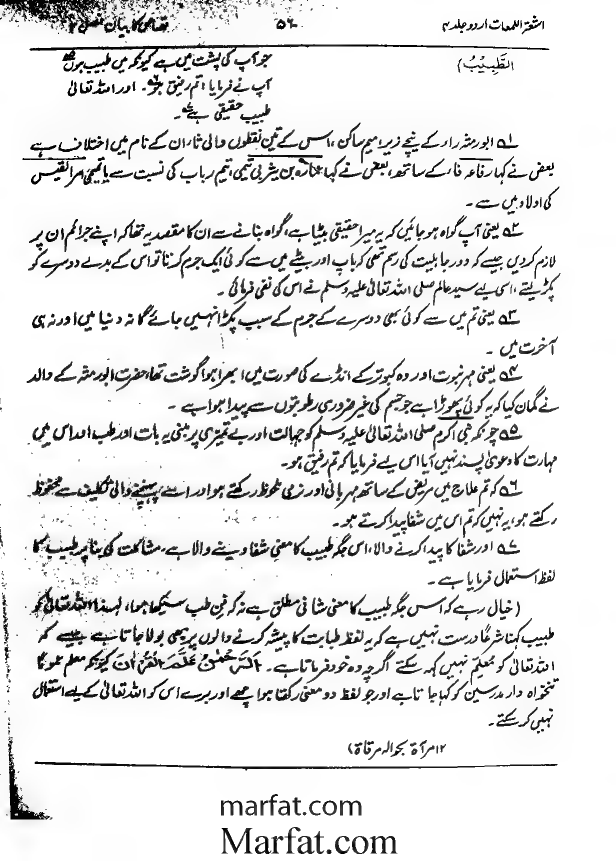 اشعۃ اللمعات اردو جلد ۴
۵۶
قصاص کا بیان فصل ۲
الطَّبِیْبُ)
جو آپ کی پشت میں ہے کیونکہ میں طبیب ہوں
آپ نے فرمایا : تم رفیق ہو۔ اور اللہ تعالیٰ
طبیب حقیقی ہے۔
۱ ابو رمثہ راء کے نیچے زیر، میم ساکن، اس کے تین نقطوں والی ثا، ان کے نام میں اختلاف ہے
بعض نے کہا رفاعہ فاء کے ساتھ، بعض نے کہا عمارہ بن یثربی تیمی، تیم رباب کی نسبت سے یا تیمی امرالقیس
کی اولاد میں سے۔
۲ یعنی آپ گواہ ہو جائیں کہ یہ میرا حقیقی بیٹا ہے، گواہ بنانے سے ان کا مقصد یہ تھا کہ اپنے جرائم ان پر
لازم کر دیں جیسے کہ دورِ جاہلیت کی رسم تھی کہ باپ اور بیٹے میں سے کوئی ایک جرم کرتا تو اس کے بدلے دوسرے کو
پکڑ لیتے، اسی لیے سیدِ عالم صلی اللہ تعالیٰ علیہ وسلم نے اس کی نفی فرمائی۔
۳ یعنی تم میں سے کوئی بھی دوسرے کے جرم کے سبب پکڑا نہیں جائے گا نہ دنیا میں اور نہ ہی
آخرت میں۔
۴ یعنی مہرِ نبوت اور وہ کبوتر کے انڈے کی صورت میں ابھرا ہوا گوشت تھا، حضرت ابو رمثہ کے والد
نے گمان کیا کہ یہ کوئی پھوڑا ہے جو جسم کی غیر ضروری رطوبتوں سے پیدا ہوا ہے۔
۵ چونکہ نبی اکرم صلی اللہ تعالیٰ علیہ وسلم کو جہالت اور بے تمیزی پر مبنی یہ بات اور طب اور اس میں
مہارت کا دعویٰ پسند نہیں آیا اس لیے فرمایا کہ تم رفیق ہو۔
۶ کہ تم علاج میں مریض کے ساتھ مہربانی اور نرمی ملحوظ رکھتے ہو اور اسے پہنچنے والی تکلیف سے محفوظ
رکھتے ہو، یہ نہیں کہ تم اس میں شفا پیدا کرتے ہو۔
۷ اور شفا کا پیدا کرنے والا، اس جگہ طبیب کا معنی شفا دینے والا ہے، مشاکلت کی بنا پر طبیب کا
لفظ استعمال فرمایا ہے۔
(خیال رہے کہ اس جگہ طبیب کا معنی شافی مطلق ہے نہ کہ فنِ طب سیکھا ہوا، لہٰذا اللہ تعالیٰ کو
طبیب کہنا شرعاً درست نہیں ہے کہ یہ لفظ طبابت کا پیشہ کرنے والوں پر بھی بولا جاتا ہے جیسے کہ
اللہ تعالیٰ کو معلّم نہیں کہہ سکتے اگرچہ وہ خود فرماتا ہے۔ اَلرَّحْمٰنُ عَلَّمَ الْقُرْاٰنَ کیونکہ معلم عموماً
تنخواہ دار مدرسین کو کہا جاتا ہے اور جو لفظ دو معنی رکھتا ہو اچھے اور برے اس کو اللہ تعالیٰ کے لیے استعمال
نہیں کر سکتے۔
۱۲ مرآۃ بحوالہ مرقاۃ)
marfat.com
Marfat.com